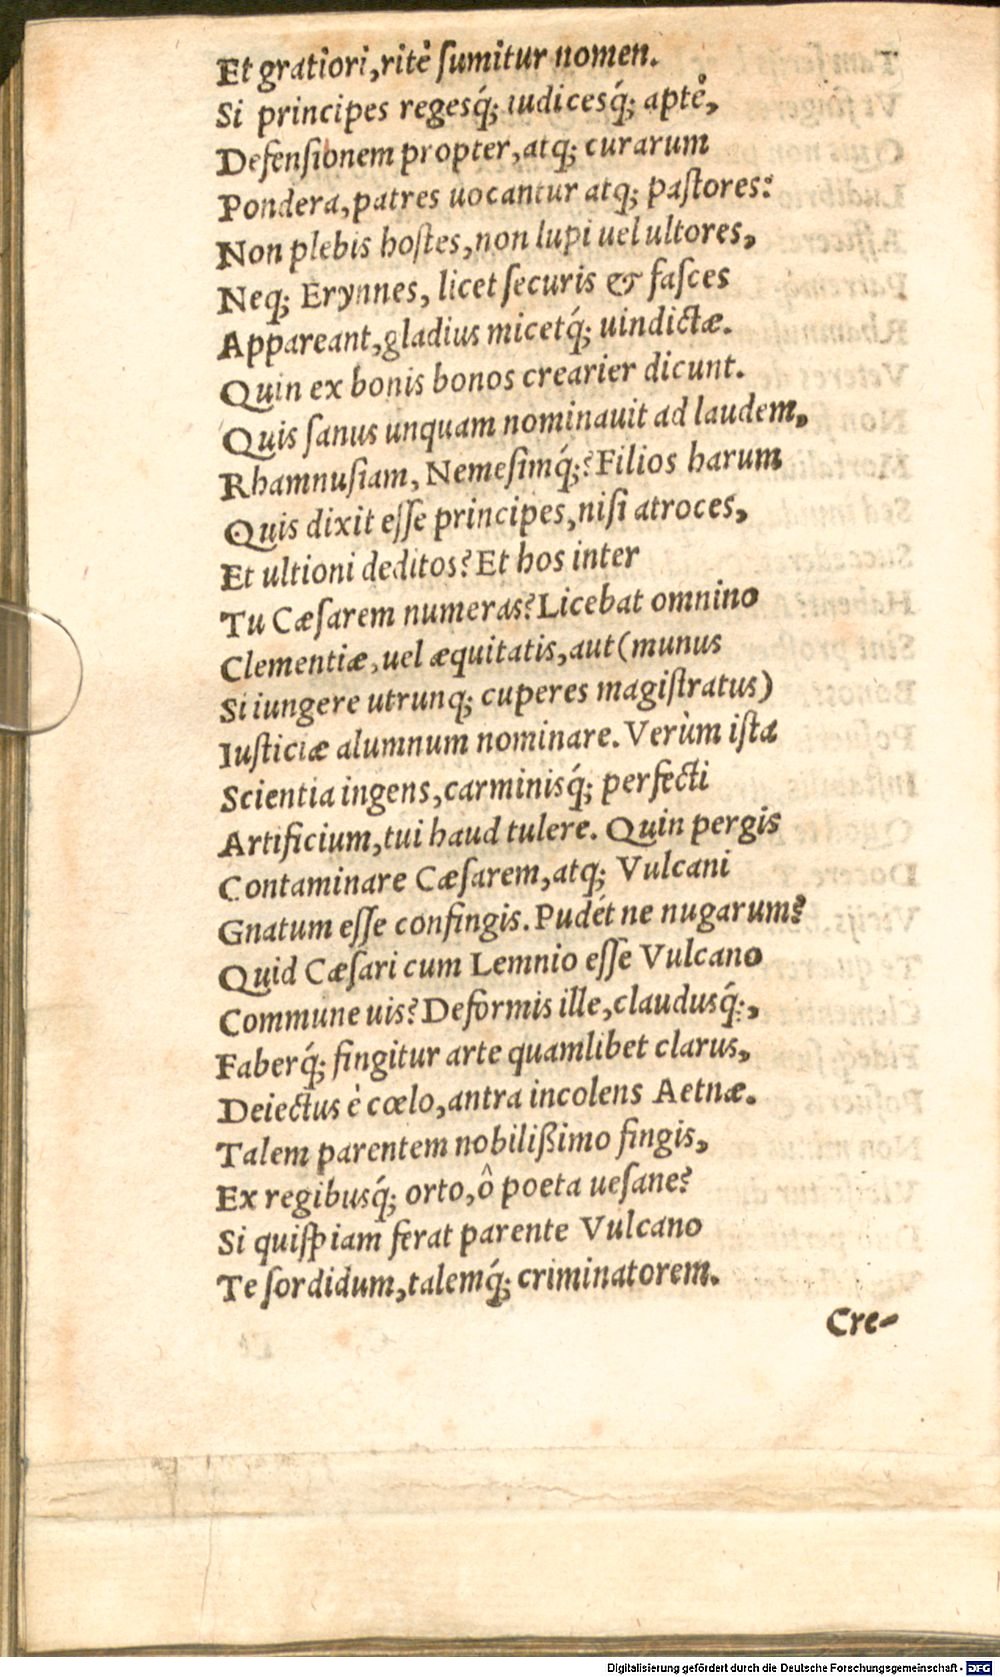 Et gratiori, ritè ſumitur nomen.
Si principes regesq́; iudicesq́; aptè,
Defenſionem propter, atq; curarum
Pondera, patres uocantur atq; paſtores:
Non plebis hoſtes, non lupi uel ultores,
Neq; Erynnes, licet ſecuris & faſces
Appareant, gladius micetq́; uindictæ.
Quin ex bonis bonos crearier dicunt.
Quis ſanus unquam nominauit ad laudem,
Rhamnuſiam, Nemeſimq́;? Filios harum
Quis dixit eſſe principes, niſi atroces,
Et ultioni deditos? Et hos inter
Tu Cæſarem numeras? Licebat omnino
Clementiæ, uel æquitatis, aut (munus
Si iungere utrunq; cuperes magiſtratus)
Iuſticiæ alumnum nominare. Verùm iſta
Scientia ingens, carminisq́; perfecti
Artificium, tui haud tulere. Quin pergis
Contaminare Cæſarem, atq; Vulcani
Gnatum eſſe confingis. Pudét ne nugarum?
Quid Cæſari cum Lemnio eſſe Vulcano
Commune uis? Deformis ille, claudusq́;,
Faberq́; fingitur arte quamlibet clarus,
Deiectus è cœlo, antra incolens Aetnæ.
Talem parentem nobilißimo fingis,
Ex regibusq́; orto, ô poeta ueſane?
Si quiſpiam ferat parente Vulcano
Te ſordidum, talemq́; criminatorem.
Cre-
Digitalisierung gefördert durch die Deutsche Forschungsgemeinschaft - DFG